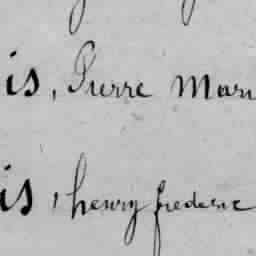 is, Pierre Mari
is, henry frederic